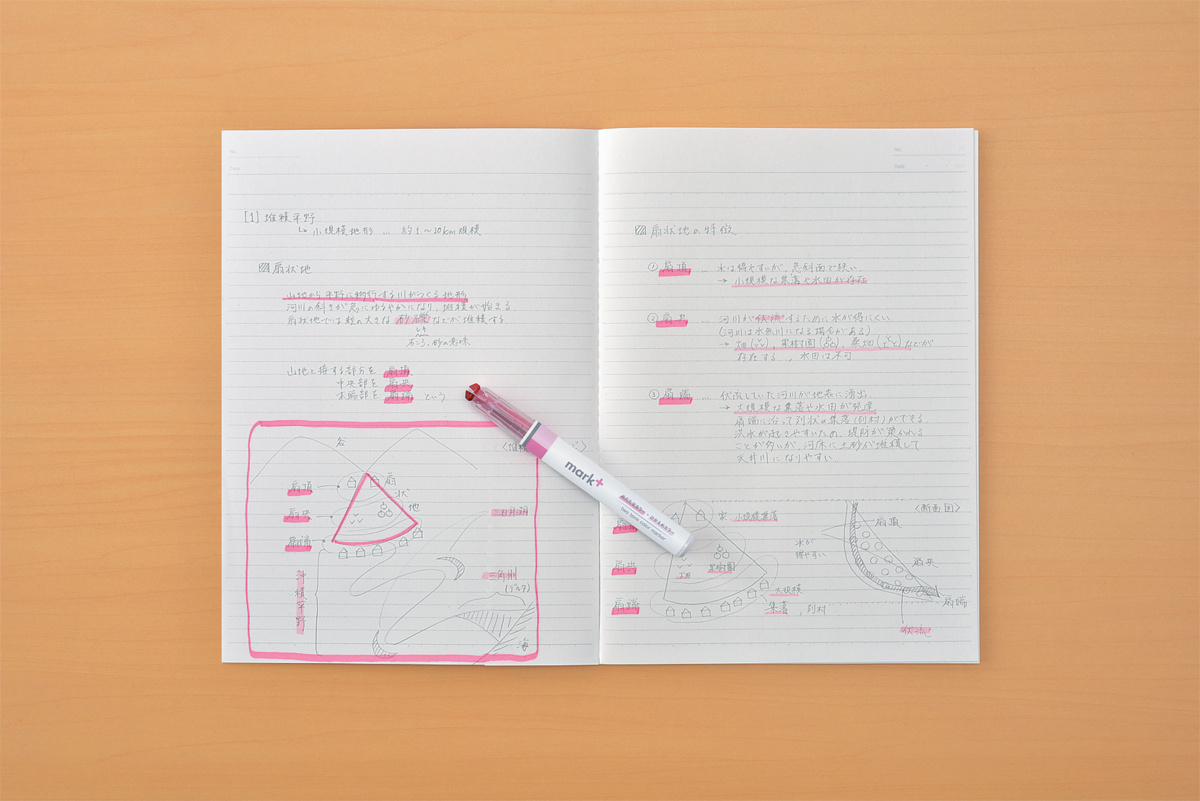 No.
Date
[1] 堆積平野
↳ 小規模地形 … 約1〜10km規模
扇状地
山地から平野に物行する川がつくる地形
河川の斜さが急にゆるやかになり、堆積が始まる。
扇状地では粒の大きな 砂礫 などが堆積する。
石ころ、砂の意味
山地と接する部分を 扇頂
中央部を 扇央
末端部を 扇端 という
谷
扇頂
扇央
扇端
扇状地
三日月湖
三角州
(デルタ)
沖積平野
海
mark+
two tone color marker
No.
Date
扇状地の特徴
① 扇頂 … 水は得やすいが、急斜面で狭い。
→ 小規模な集落や水田が存在
② 扇央 … 河川が伏流するために水が得にくい
(河川は水無川になる場合がある)
→ 畑、果樹園、桑畑などが
存在する。、水田は不可
③ 扇端 … 伏流していた河川が地表に湧出
→ 大規模な集落や水田が発達
扇端に沿って列状の集落(列村)ができる。
洪水が起きやすいため、堤防が築かれる
ことが多いが、河床に土砂が堆積して
天井川になりやすい
扇央
扇端
家 小規模集落
水が
得やすい
果樹園
大規模
集落、列村
〈断面図〉
扇頂
扇央
扇端
伏流